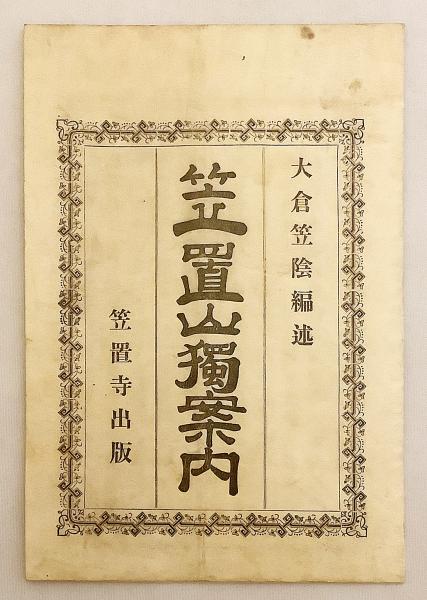 大倉笠陰編述
笠置山獨案内
笠置寺出版